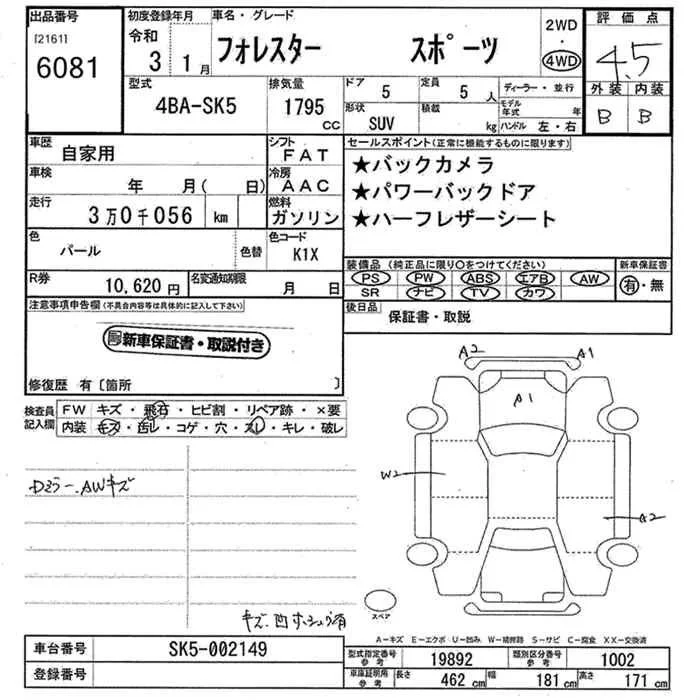 出品番号
[2161]
6081
初度登録年月
令和 3 1月
車名・グレード
フォレスター スポーツ
2WD
・
4WD
評価点
4.5
外装 内装
B B
型式
4BA-SK5
排気量
1795 CC
ドア 5
定員 5 人
形状 SUV
積載 kg
ディーラー・並行
モデル年式 年
ハンドル 左・右
車歴
自家用
シフト
FAT
車検
年 月( 日)
冷房
AAC
走行
3万0千056 km
燃料
ガソリン
色
パール
色替
色コード
K1X
R券
10,620円
名変通知期限
月 日
セールスポイント(正常に機能するものに限ります)
★バックカメラ
★パワーバックドア
★ハーフレザーシート
装備品 (純正品に限り○をつけてください)
PS PW ABS エアB AW
SR ナビ TV カワ
新車保証書
有・無
後日品
保証書・取説
注意事項申告欄(不具合内容等は具体的に記入して下さい)
新車保証書・取説付き
修復歴 有〔箇所 〕
検査員記入欄
FW キズ・飛石・ヒビ割・リペア跡・×要
内装 キズ・汚レ・コゲ・穴・スレ・キレ・破レ
Dミラー、AWキズ
A2 A1
A1
W2
A2
スペア
A-キズ E-エクボ U-凹み W-補修跡 S-サビ C-腐食 XX-交換済
車台番号
SK5-002149
登録番号
型式指定番号 参考
19892
類別区分番号 参考
1002
車庫証明用 参考
長さ 462 cm
幅 181 cm
高さ 171 cm